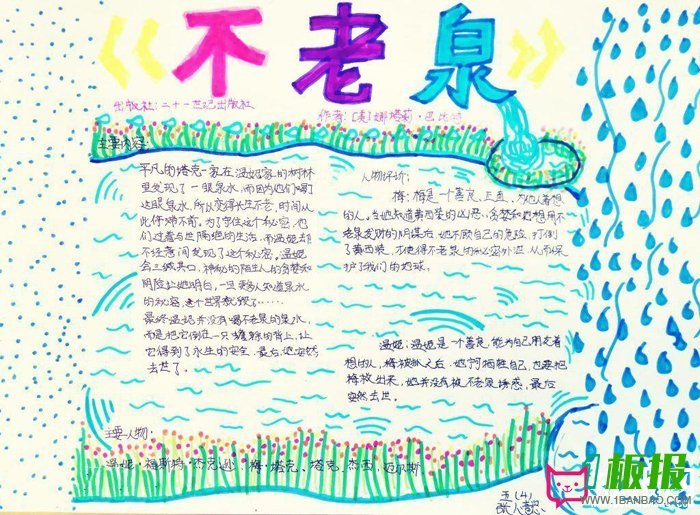 《不老泉》
出版社：二十一世纪出版社
作者：[美]娜塔莉·巴比特
主要内容：
平凡的塔克一家在温妮家的树林
里发现了一眼泉水，而因为他们喝了
这眼泉水，所以变得长生不老，时间从
此停滞不前。为了守住这个秘密，他
们过着与世隔绝的生活，而温妮却
不经意间发现了这个秘密。温妮
会三缄其口，神秘的陌生人的贪婪和
阴险让她明白，一旦
的秘密，这个世界就毁了……
最终温妮并没有喝不老泉的泉水，
而是把它倒在一只癞蛤蟆的背上，让
它得到了永生的安全，最后，她安然
去世了。
人物评价：
梅：梅是一个善良、正直、为他人着想
的人。当她知道黄西装的凶恶、贪婪和他想用不
老泉发财的阴谋后，她不顾自己的危险，打倒
了黄西装，才使得不老泉的秘密外泄，从而保
护了我们的地球。
温妮：温妮是一个善良，能为自己朋友着
想的人，梅被抓之后，她宁可牺牲自己，也要把
梅救出来，她并没有被不老泉诱惑，最后
安然去世。
主要人物：
温妮·福斯特、杰克逊、梅·塔克、塔克、杰西、迈尔斯
五(4)
板报
WWW.1BANBAO.COM